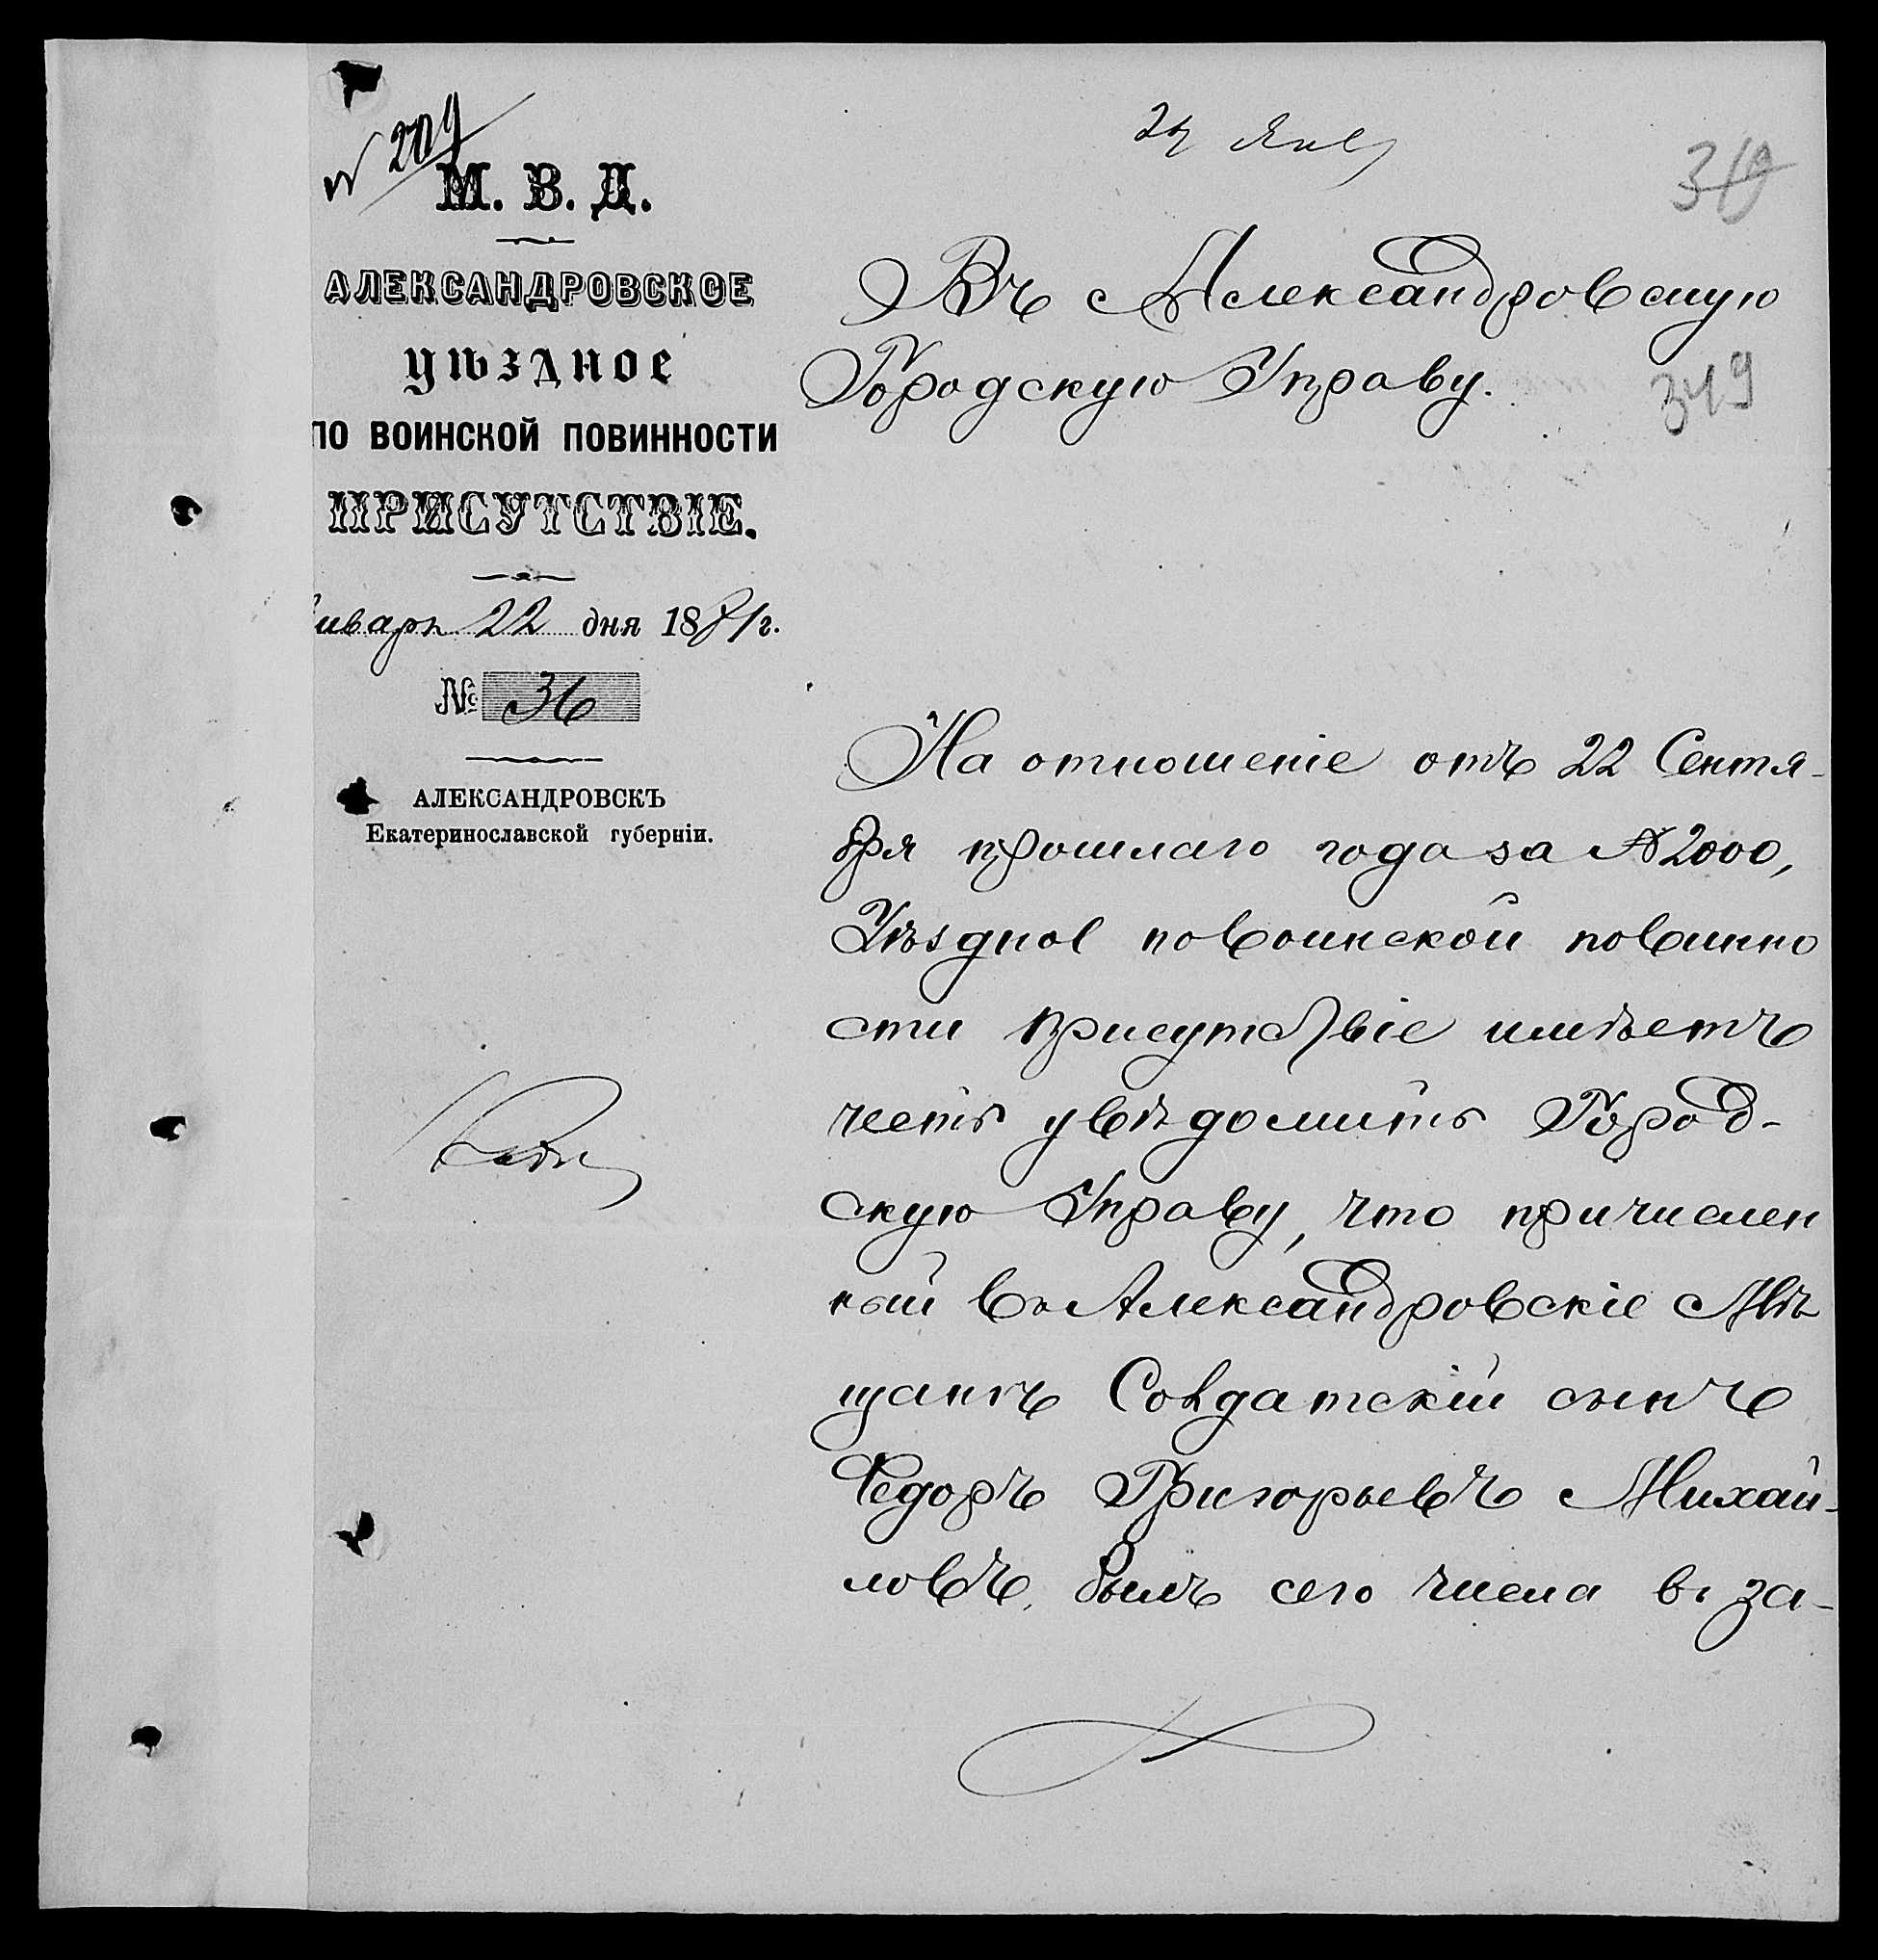 № 209
М. В. Д.
АЛЕКСАНДРОВСКОЕ
УѢЗДНОЕ
ПО ВОИНСКОЙ ПОВИННОСТИ
ПРИСУТСТВІЕ.
нваря 22 дня 1881 г.
№ 36
АЛЕКСАНДРОВСКЪ
Екатеринославской губерніи.
24 Янв
349
Въ Александровскую
Городскую Управу.
На отношеніе отъ 22 Сентя-
бря прошлаго года за № 2000,
Уѣздное по воинской повинно
сти присутствіе имѣетъ
честь увѣдомить Город-
скую Управу, что причислен
ный въ Александровскіе Мѣ
щанѣ Солдатскій сынъ
Федоръ Григорьевъ Михай-
ловъ, былъ сего числа въ за-